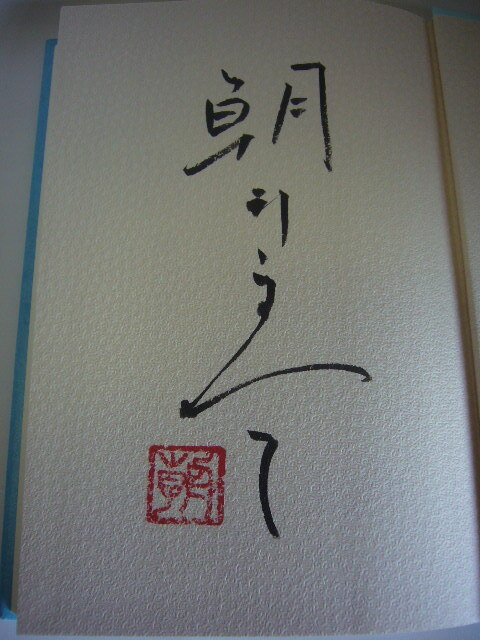 朝井まかて
朝